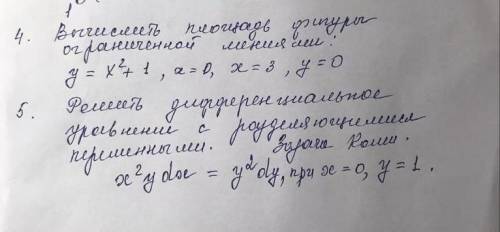 4. Вычислить площадь фигуры
ограниченной линиями:
y = x² + 1, x = 0, x = 3, y = 0
5. Решить дифференциальное
уравнение с разделяющимися
переменными. Задача Коши.
x² y dx = y² dy, при x = 0, y = 1.